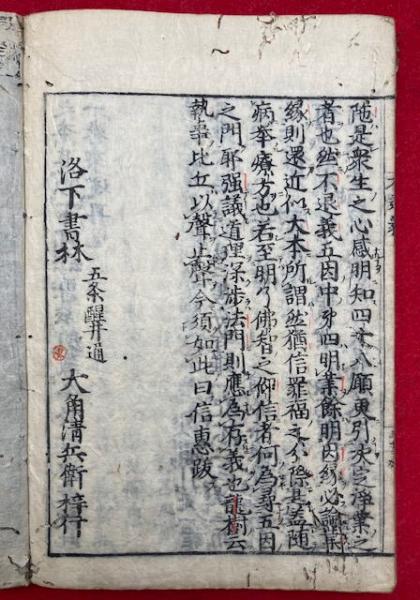 陁是衆生之心感明知四十八願更引决定種業之
者也然不退義五因中第四明業餘明因縁必論果
縁則還近似大本所謂然猶信罪福之分際其蓋随
病举療方也若至明了佛智之仰信者何為尋五因
之門耶强議道理深渉法門則應為存義也龍樹云
執事比丘以聲止聲今須如此曰信惠跋
洛下書林
五条醒井通
大角清兵衛梓行